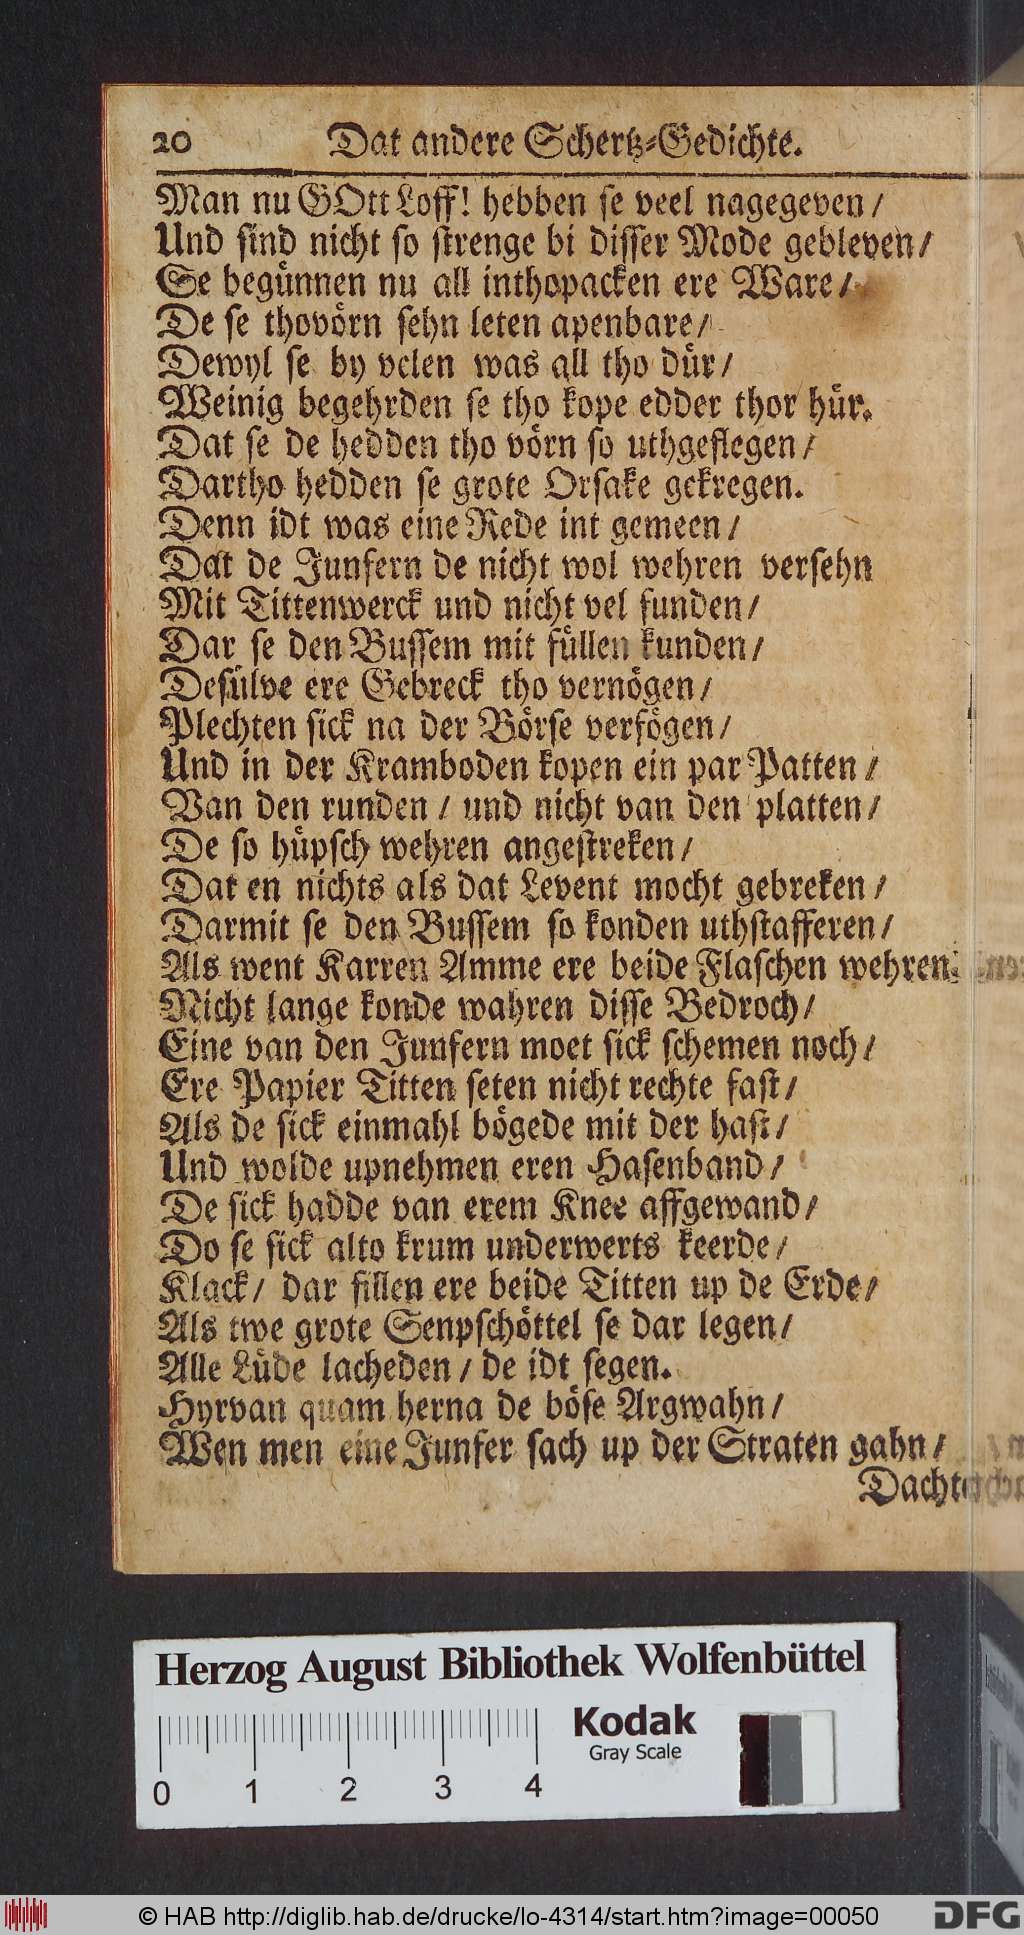 20 Dat andere Schertz-Gedichte.
Man nu GOtt Loff! hebben se veel nagegeven /
Und sind nicht so strenge bi disser Mode gebleven /
Se begünnen nu all inthopacken ere Ware /
De se thovörn sehn leten apenbare /
Dewyl se by velen was all tho dür /
Weinig begehrden se tho kope edder thor hür.
Dat se de hedden tho vörn so uthgeflegen /
Dartho hedden se grote Orsake gekregen.
Denn idt was eine Rede int gemeen /
Dat de Junfern de nicht wol wehren versehn
Mit Tittenwerck und nicht vel funden /
Dar se den Bussem mit füllen kunden /
Desülve ere Gebreck tho vernögen /
Plechten sick na der Börse verfögen /
Und in der Kramboden kopen ein par Patten /
Van den runden / und nicht van den platten /
De so hüpsch wehren angestreken /
Dat en nichts als dat Levent mocht gebreken /
Darmit se den Bussem so konden uthstafferen /
Als went Karren Amme ere beide Flaschen wehren.
Nicht lange konde wahren disse Bedroch /
Eine van den Junfern moet sick schemen noch /
Ere Papier Titten seten nicht rechte fast /
Als de sick einmahl bögede mit der hast /
Und wolde upnehmen eren Hasenband /
De sick hadde van erem Knee affgewand /
Do se sick alto krum underwerts keerde /
Klack / dar fillen ere beide Titten up de Erde /
Als twe grote Senpschöttel se dar legen /
Alle Lüde lacheden / de idt segen.
Hyrvan quam herna de böse Argwahn /
Wen men eine Junfer sach up der Straten gahn /
Herzog August Bibliothek Wolfenbüttel
Kodak
Gray Scale
0 1 2 3 4
© HAB http://diglib.hab.de/drucke/lo-4314/start.htm?image=00050
DFG